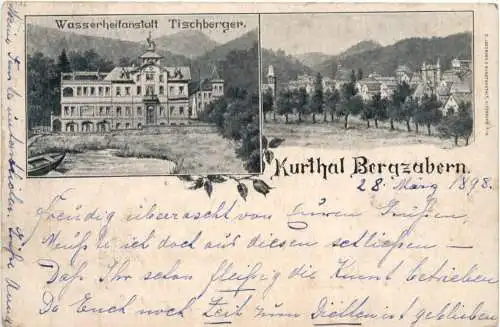 Wasserheilanstalt Tischberger.
Kurthal Bergzabern.
28. März 1898.
Freudig überrascht von Euren Grüßen,
Muß ich doch aus diesen schließen –
Daß Ihr schon fleißig die Kunst betrieben
Da Euch noch Zeit zum Dichten ist geblieben